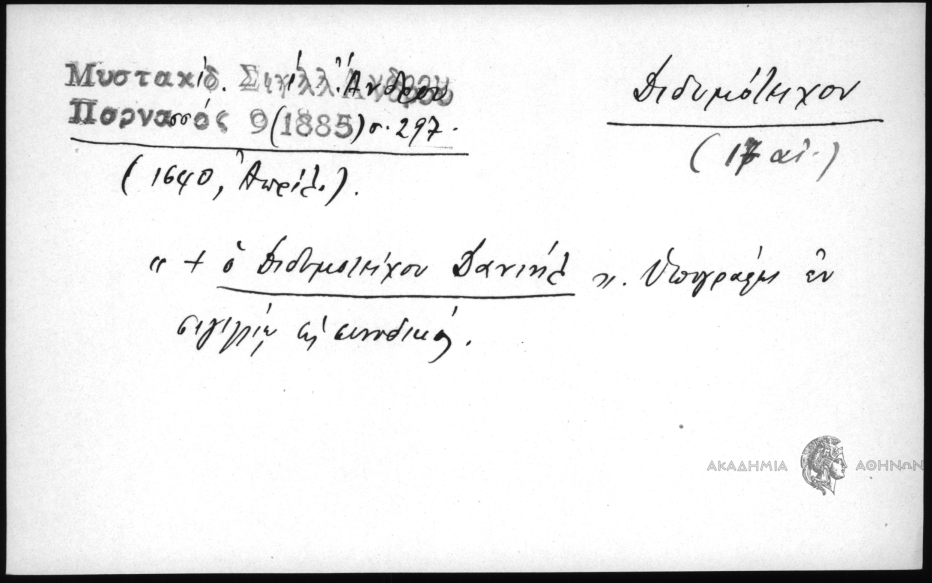 Μυστακίδ. Σιγίλλ. Ἄνδρου
Παρνασσός 9 (1885) σ. 297.
(1640, Ἀπρίλ.).
Διδυμότειχον
(17 αἰ.)
« + ὁ Διδυμοτείχου Δανιήλ ». Ὑπογράφει ἐν
σιγιλίῳ συνοδικῷ.
ΑΚΑΔΗΜΙΑ ΑΘΗΝΩΝ